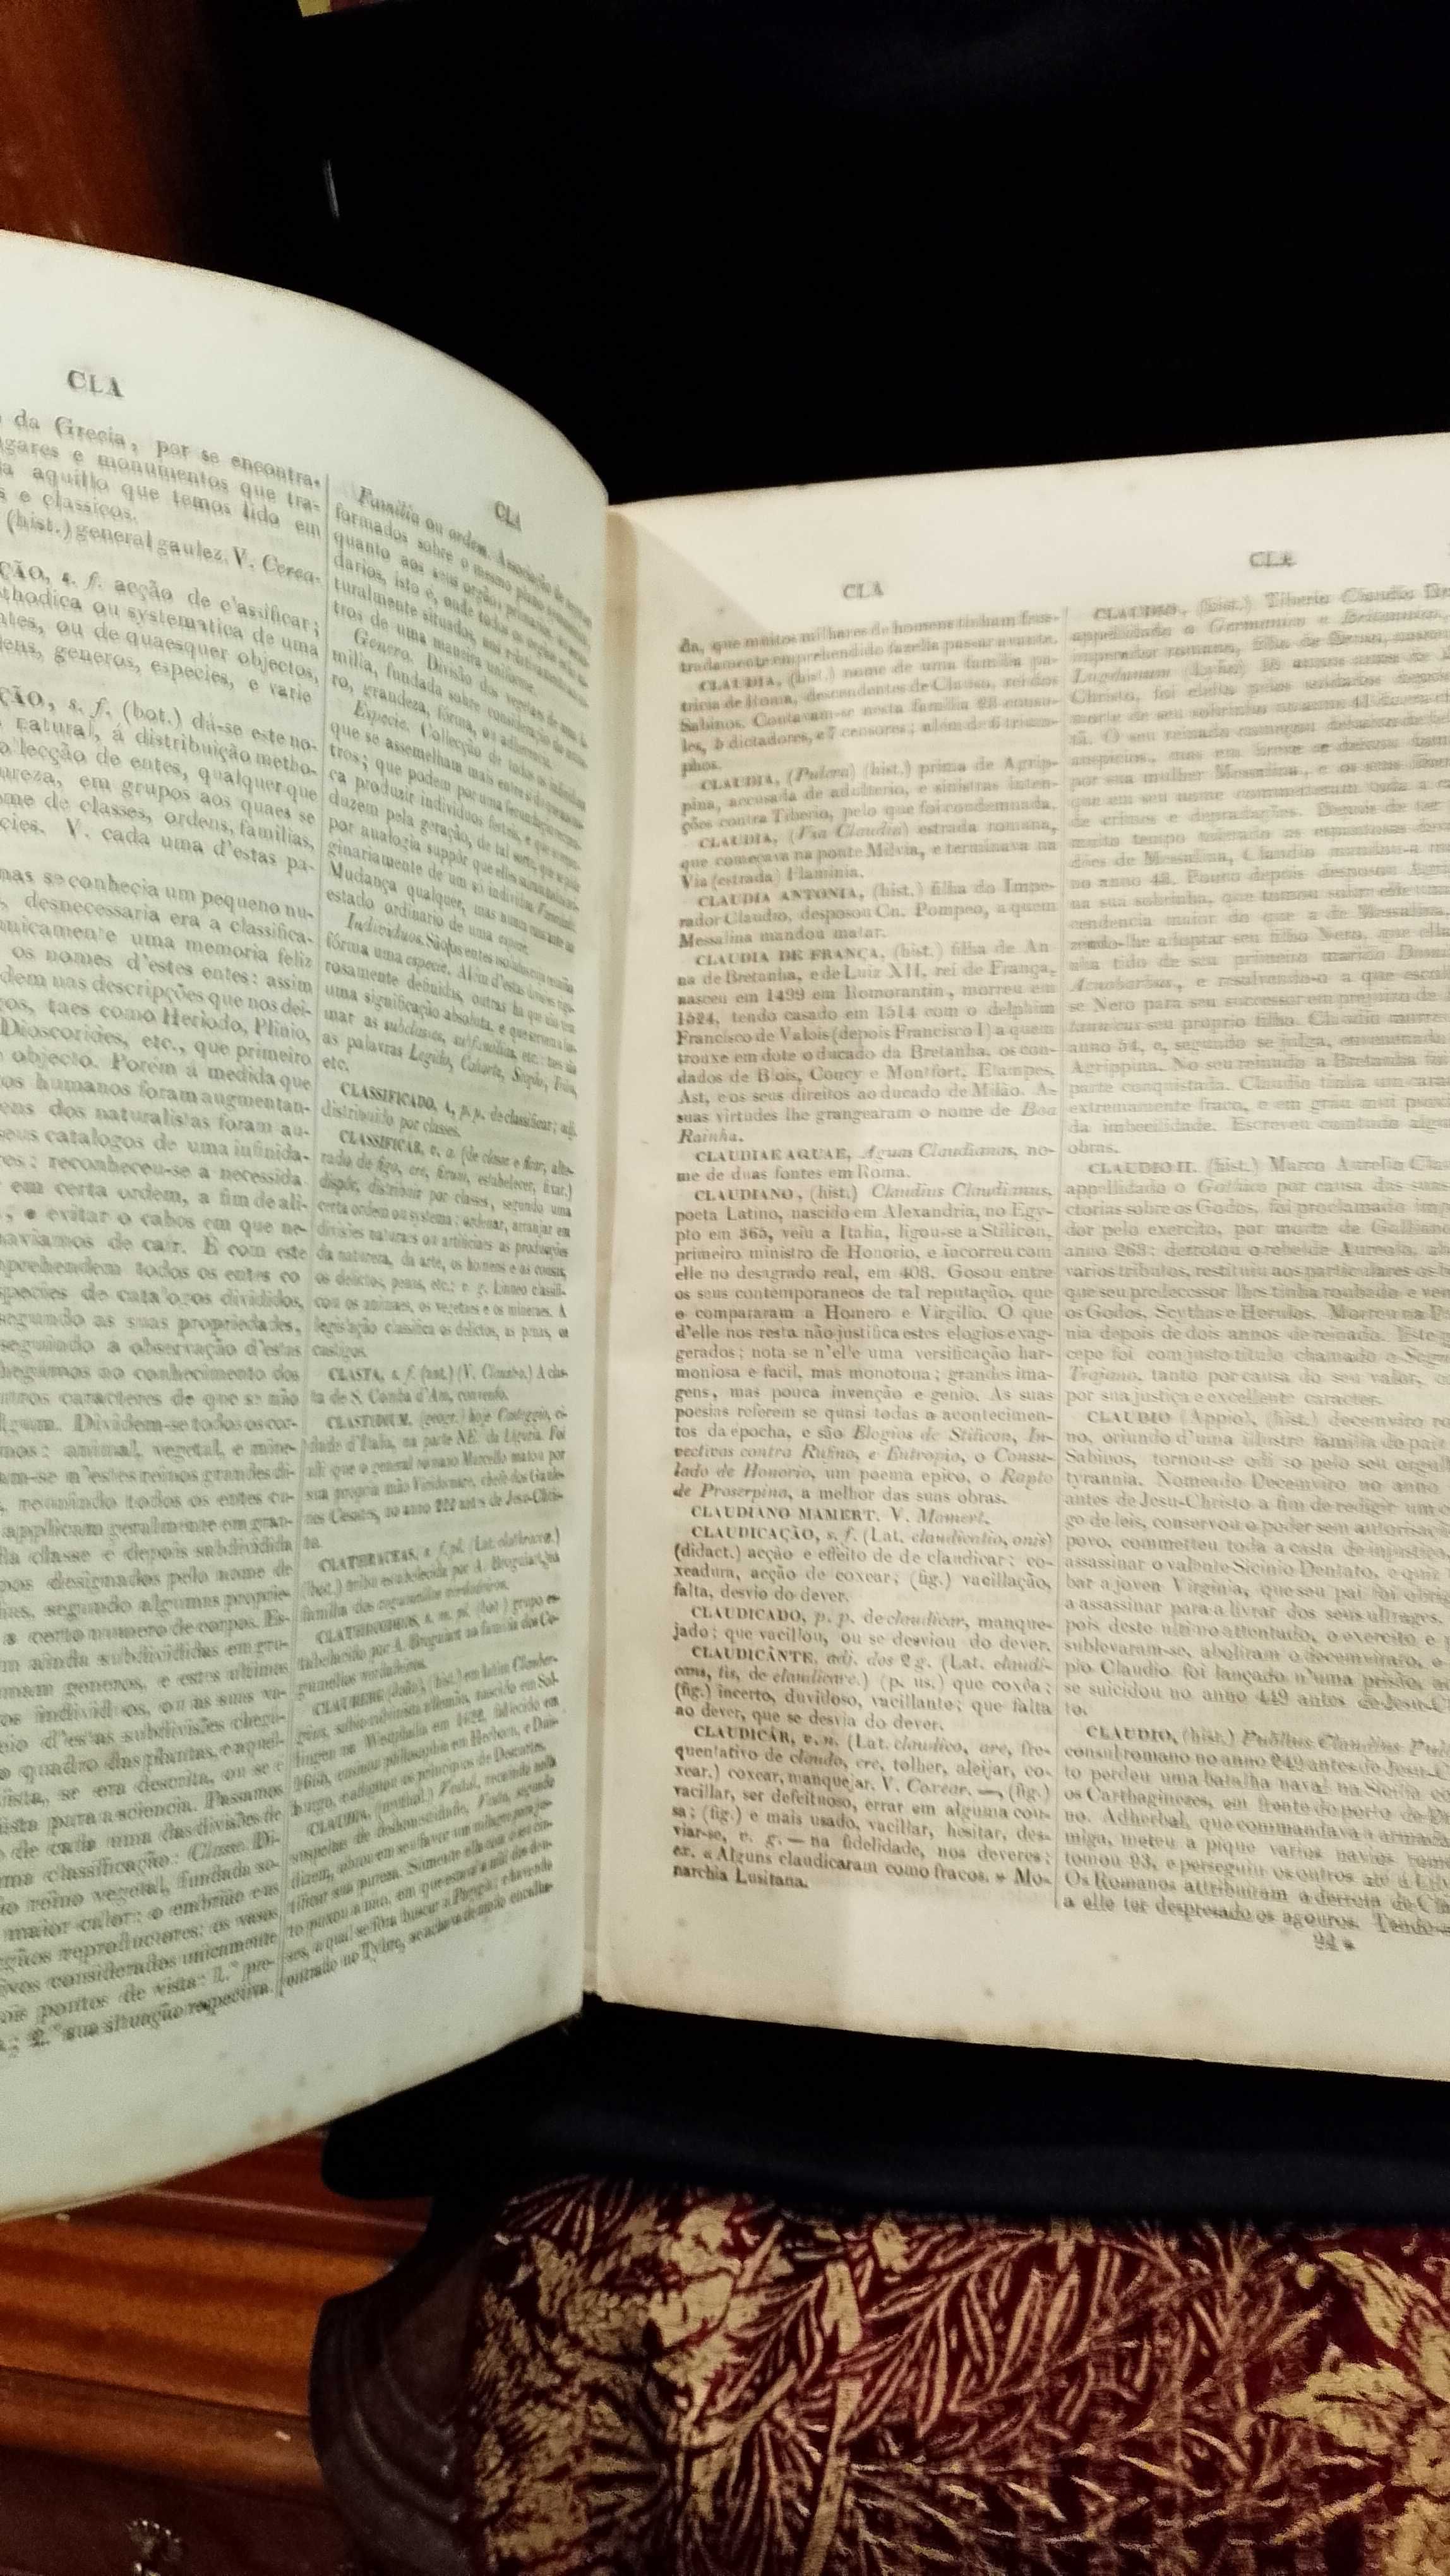 CLA
da Grecia, por se encontra-
gares e monumentos que tra-
a aquillo que temos lido em
s e classicos.
(hist.) general gaulez. V. Cerea-
ÇÃO, s. f. acção de c'assificar;
thodica ou systematica de uma
ntes, ou de quaesquer objectos,
dens, generos, especies, e varie
ÇÃO, s. f. (bot.) dá-se este no-
natural, á distribuição metho-
o lecção de entes, qualquer que
ureza, em grupos aos quaes se
me de classes, ordens, familias,
cies. V. cada uma d'estas pa-
nas se conhecia um pequeno nu-
, desnecessaria era a classifica-
unicamente uma memoria feliz
os nomes d'estes entes: assim
dem nas descripções que nos dei-
gos, taes como Heriodo, Plinio,
Dioscorides, etc., que primeiro
objecto. Porém á medida que
os humanos foram augmentan-
ens dos naturalis'as foram au-
seus catalogos de uma infinida-
res: reconheceu-se a necessida
em certa ordem, a fim de ali-
, e evitar o cahos em que ne-
haviamos de cair. E com este
prehendem todos os entes co
species de cata'ogos divididos,
segundo as suas propriedades,
seguindo a observação d'estas
hegimos ao conhecimento dos
utros caracteres de que se não
lgum. Dividem-se todos os cor-
nos: animal, vegetal, e mine-
am-se n'estes reinos grandes di-
, reunindo todos os entes
applicam geralmente em gran-
la classe e depois subdividida
pos designados pelo nome de
lias, segundo algumas proprie-
a certo numero de corpos. Es-
m ainda subdivididas em gru-
mam generos, e estes ultimos
os individuos, ou as suas va-
eio d'estas subdivisões chega-
o quadro das plantas, e aquel-
vista, se era descrita, ou se é
ista para a sciencia. Passamos
o de cada uma das divisões de
ma classificação: Classe. Di-
o reino vegetal, fundada so-
maior valor: o embrião e os
gãos reproductores: os vasos
ivos considerados unicamente
ois pontos de vista: 1.° pre-
; 2.° sua situação respectiva
CLA
Familia ou ordem. Associação de
formados sobre o mesmo plano
quanto aos seus orgãos
darios, isto é, onde todos os orgãos
turalmente situados, uns relativamente
tros de uma maneira uniforme.
Genero. Divisão dos vegetaes de uma
milia, fundada sobre consideração
ro, grandeza, fórma, ou adherencia.
Especie. Collecção de todos os individuos
que se assemelham mais entre si
tros; que podem por uma fecundação
ca produzir individuos ferteis, e que
duzem pela geração, de tal sorte que se póde
por analogia suppôr que elles
ginariamente de um só individuo.
Mudança qualquer, mas
estado ordinario de uma especie.
Individuos. São os entes
fórma uma especie. Além d'estas
rosamente definidas, outras ha que
uma significação absoluta, e que
mar as subclasses, subfamilias, etc.: taes são
as palavras Legião, Cohorte, Secção,
etc.
CLASSIFICADO, A, p. p. de classificar; adj.
distribuido por classes.
CLASSIFICAR, v. a. (de classe e ficar, alte-
rado de figo, ere, firmar, estabelecer, fixar.)
dispôr, distribuir por classes, segundo uma
certa ordem ou systema; ordenar, arranjar em
divisões naturaes ou artificiaes as producções
da natureza, da arte, os homens e as cousas,
os delictos, penas, etc.: v. g. Linneo classifi-
cou os animaes, os vegetaes e os mineraes. A
legislação classifica os delictos, as penas, os
castigos.
CLASTA, s. f. (ant.) (V. Claustro.) A clas-
ta de S. Comba d'Am, convento.
CLASTIDIUM, (geogr.) hoje Casteggio, ci-
dade d'Italia, na parte NE. da Liguria. Foi
ali que o general romano Marcello matou por
sua propria mão Viridomare, chefe dos Gaule-
zes Cesates, no anno 222 antes de Jesu-Chris-
to.
CLATHRACEAS, s. f. pl. (Lat. clathraceæ.)
(bot.) tribu estabelecida por A. Brogniart na
familia dos cogumellos verdadeiros.
s. m. pl. (bot.) grupo es-
tabelecido por A. Brogniart na familia dos Co-
gumellos verdadeiros.
CLAUBERG (João), (hist.) em latim Clauber-
gius, sabio calvinista allemão, nascido em Sol-
lingen na Westphalia em 1622, fallecido em
1665, ensinou philosophia em Herborn, e Duis-
burgo, e adoptou os principios de Descartes.
CLAUDIA, (mythol.) Vestal, recaindo nella
suspeitas de deshonestidade, Vesta, segundo
dizem, obrou em seu favor um milagre para jus-
tificar sua pureza. Sómente ella com o seu cin-
to puxou a nau, em que estava a mãi dos deu-
ses, a qual se fôra buscar a Phrygia; e havendo
entrado no Tybre, se achava de modo encalha-
CLA
da, que muitos milhares de homens tinham frus-
tradamente emprehendido fazella passar avante.
CLAUDIA, (hist.) nome de uma familia pa-
tricia de Roma, descendentes de Clauso, rei dos
Sabinos. Contavam-se nesta familia 28 consu-
les, 5 dictadores, e 7 censores; além de 6 trium-
phos.
CLAUDIA, (Pulcra) (hist.) prima de Agrip-
pina, accusada de adulterio, e sinistras inten-
ções contra Tiberio, pelo que foi condemnada.
CLAUDIA, (Via Claudia) estrada romana,
que começava na ponte Milvia, e terminava na
Via (estrada) Flaminia.
CLAUDIA ANTONIA, (hist.) filha do Impe-
rador Claudio, desposou Cn. Pompeo, a quem
Messalina mandou matar.
CLAUDIA DE FRANÇA, (hist.) filha de An-
na de Bretanha, e de Luiz XII, rei de França,
nasceu em 1499 em Romorantin, morreu em
1524, tendo casado em 1514 com o delphim
Francisco de Valois (depois Francisco I) a quem
trouxe em dote o ducado da Bretanha, os con-
dados de B'ois, Coucy e Montfort, Etampes,
Ast, e os seus direitos ao ducado de Milão. As
suas virtudes lhe grangearam o nome de Boa
Rainha.
CLAUDIAE AQUAE, Aguas Claudianas, no-
me de duas fontes em Roma.
CLAUDIANO, (hist.) Claudius Claudianus,
poeta Latino, nascido em Alexandria, no Egy-
pto em 365, veiu a Italia, ligou-se a Stilicon,
primeiro ministro de Honorio, e incorreu com
elle no desagrado real, em 408. Gosou entre
os seus contemporaneos de tal reputação, que
o compararam a Homero e Virgilio. O que
d'elle nos resta não justifica estes elogios exag-
gerados; nota-se n'el'e uma versificação har-
moniosa e facil, mas monotona; grandes ima-
gens, mas pouca invenção e genio. As suas
poesias referem se quasi todas a acontecimen-
tos da epocha, e são Elogios de Stilicon, In-
vectivas contra Rufino, e Eutropio, o Consu-
lado de Honorio, um poema epico, o Rapto
de Proserpina, a melhor das suas obras.
CLAUDIANO MAMERT. V. Mamert.
CLAUDICAÇÃO, s. f. (Lat. claudicatio, onis)
(didact.) acção e effeito de de claudicar; co-
xeadura, acção de coxear; (fig.) vacillação,
falta, desvio do dever.
CLAUDICADO, p. p. de claudicar, manque-
jado; que vacillou, ou se desviou do dever.
CLAUDICÂNTE, adj. dos 2 g. (Lat. claudi-
cans, tis, de claudicare.) (p. us.) que coxêa;
(fig.) incerto, duvidoso, vacillante; que falta
ao dever, que se desvia do dever.
CLAUDICÁR, v. n. (Lat. claudico, are, fre-
quentativo de claudo, ere, tolher, aleijar, co-
xear.) coxear, manquejar. V. Coxear. —, (fig.)
vacillar, ser defeituoso, errar em alguma cou-
sa; (fig.) e mais usado, vacillar, hesitar, des-
viar-se, v. g. — na fidelidade, nos deveres:
ex. « Alguns claudicaram como fracos. » Mo-
narchia Lusitana.
CLA
CLAUDIO, (hist.) Tiberio Claudio
appellidado o Germanico e Britannico,
imperador romano, filho de Druso, nasceu
Lugdunum (Lyão) 10 annos antes de
Christo, foi eleito pelos soldados depois
morte de seu sobrinho no anno 41
tã. O seu reinado começou debaixo de
auspicios, mas em breve se deixou
por sua mulher Messalina, e os seus
que em seu nome commetteram toda a
de crimes e depradações. Depois de ter
muito tempo tolerado as espantosas
dões de Messalina, Claudio mandou-a
no anno 48. Pouco depois desposou
na sua sobrinha, que tomou sobre elle uma
cendencia maior do que a de Messalina,
zendo-lhe adoptar seu filho Nero, que ella
nha tido de seu primeiro marido
Aenobarbus, e resolvendo-o a que
se Nero para seu successor em prejuizo de
seu proprio filho. Claudio morreu
anno 54, e, segundo se julga, envenenado
Agrippina. No seu reinado a Bretanha foi
parte conquistada. Claudio tinha um
extremamente fraco, e em gráu mui
da imbecilidade. Escreveu comtudo
obras.
CLAUDIO II. (hist.) Marco Aurelio
appellidado o Gothico por causa das suas
ctorias sobre os Godos, foi proclamado
dor pelo exercito, por morte de Galliano
anno 268: derrotou o rebelde Aureolo,
varios tributos, restituiu aos particulares os
que seu predecessor lhes tinha roubado e
os Godos, Scythas e Herulos. Morreu na
nia depois de dois annos de reinado. Este
cepe foi com justo titulo chamado o
Trajano, tanto por causa do seu valor,
por sua justiça e excellente caracter.
CLAUDIO (Appio), (hist.) decemviro
no, oriundo d'uma illustre familia do paiz
Sabinos, tornou-se odi so pelo seu
tyrannia. Nomeado Decemviro no anno
antes de Jesu-Christo a fim de redigir um
go de leis, conservou o poder sem
povo, commetteu toda a casta de injustiça,
assassinar o valente Sicinio Dentato, e quiz
bar a joven Virginia, que seu pai foi
a assassinar para a livrar dos seus ultrages.
pois deste ultimo attentado, o exercito e
sublevaram-se, aboliram o decemvirato,
pio Claudio foi lançado n'uma prisão,
se suicidou no anno 449 antes de Jesu-C
to.
CLAUDIO, (hist.) Publius Claudius
consul romano no anno 249 antes de Jesu-C
to perdeu uma batalha naval na Sicilia
os Carthaginezes, em frente do porto de
no. Adherbal, que commandava a armada
miga, meteu a pique varios navios
tomou 93, e perseguiu os outros até a
Os Romanos attribuiram a derrota de
a elle ter despresado os agouros. Tendo
94 *